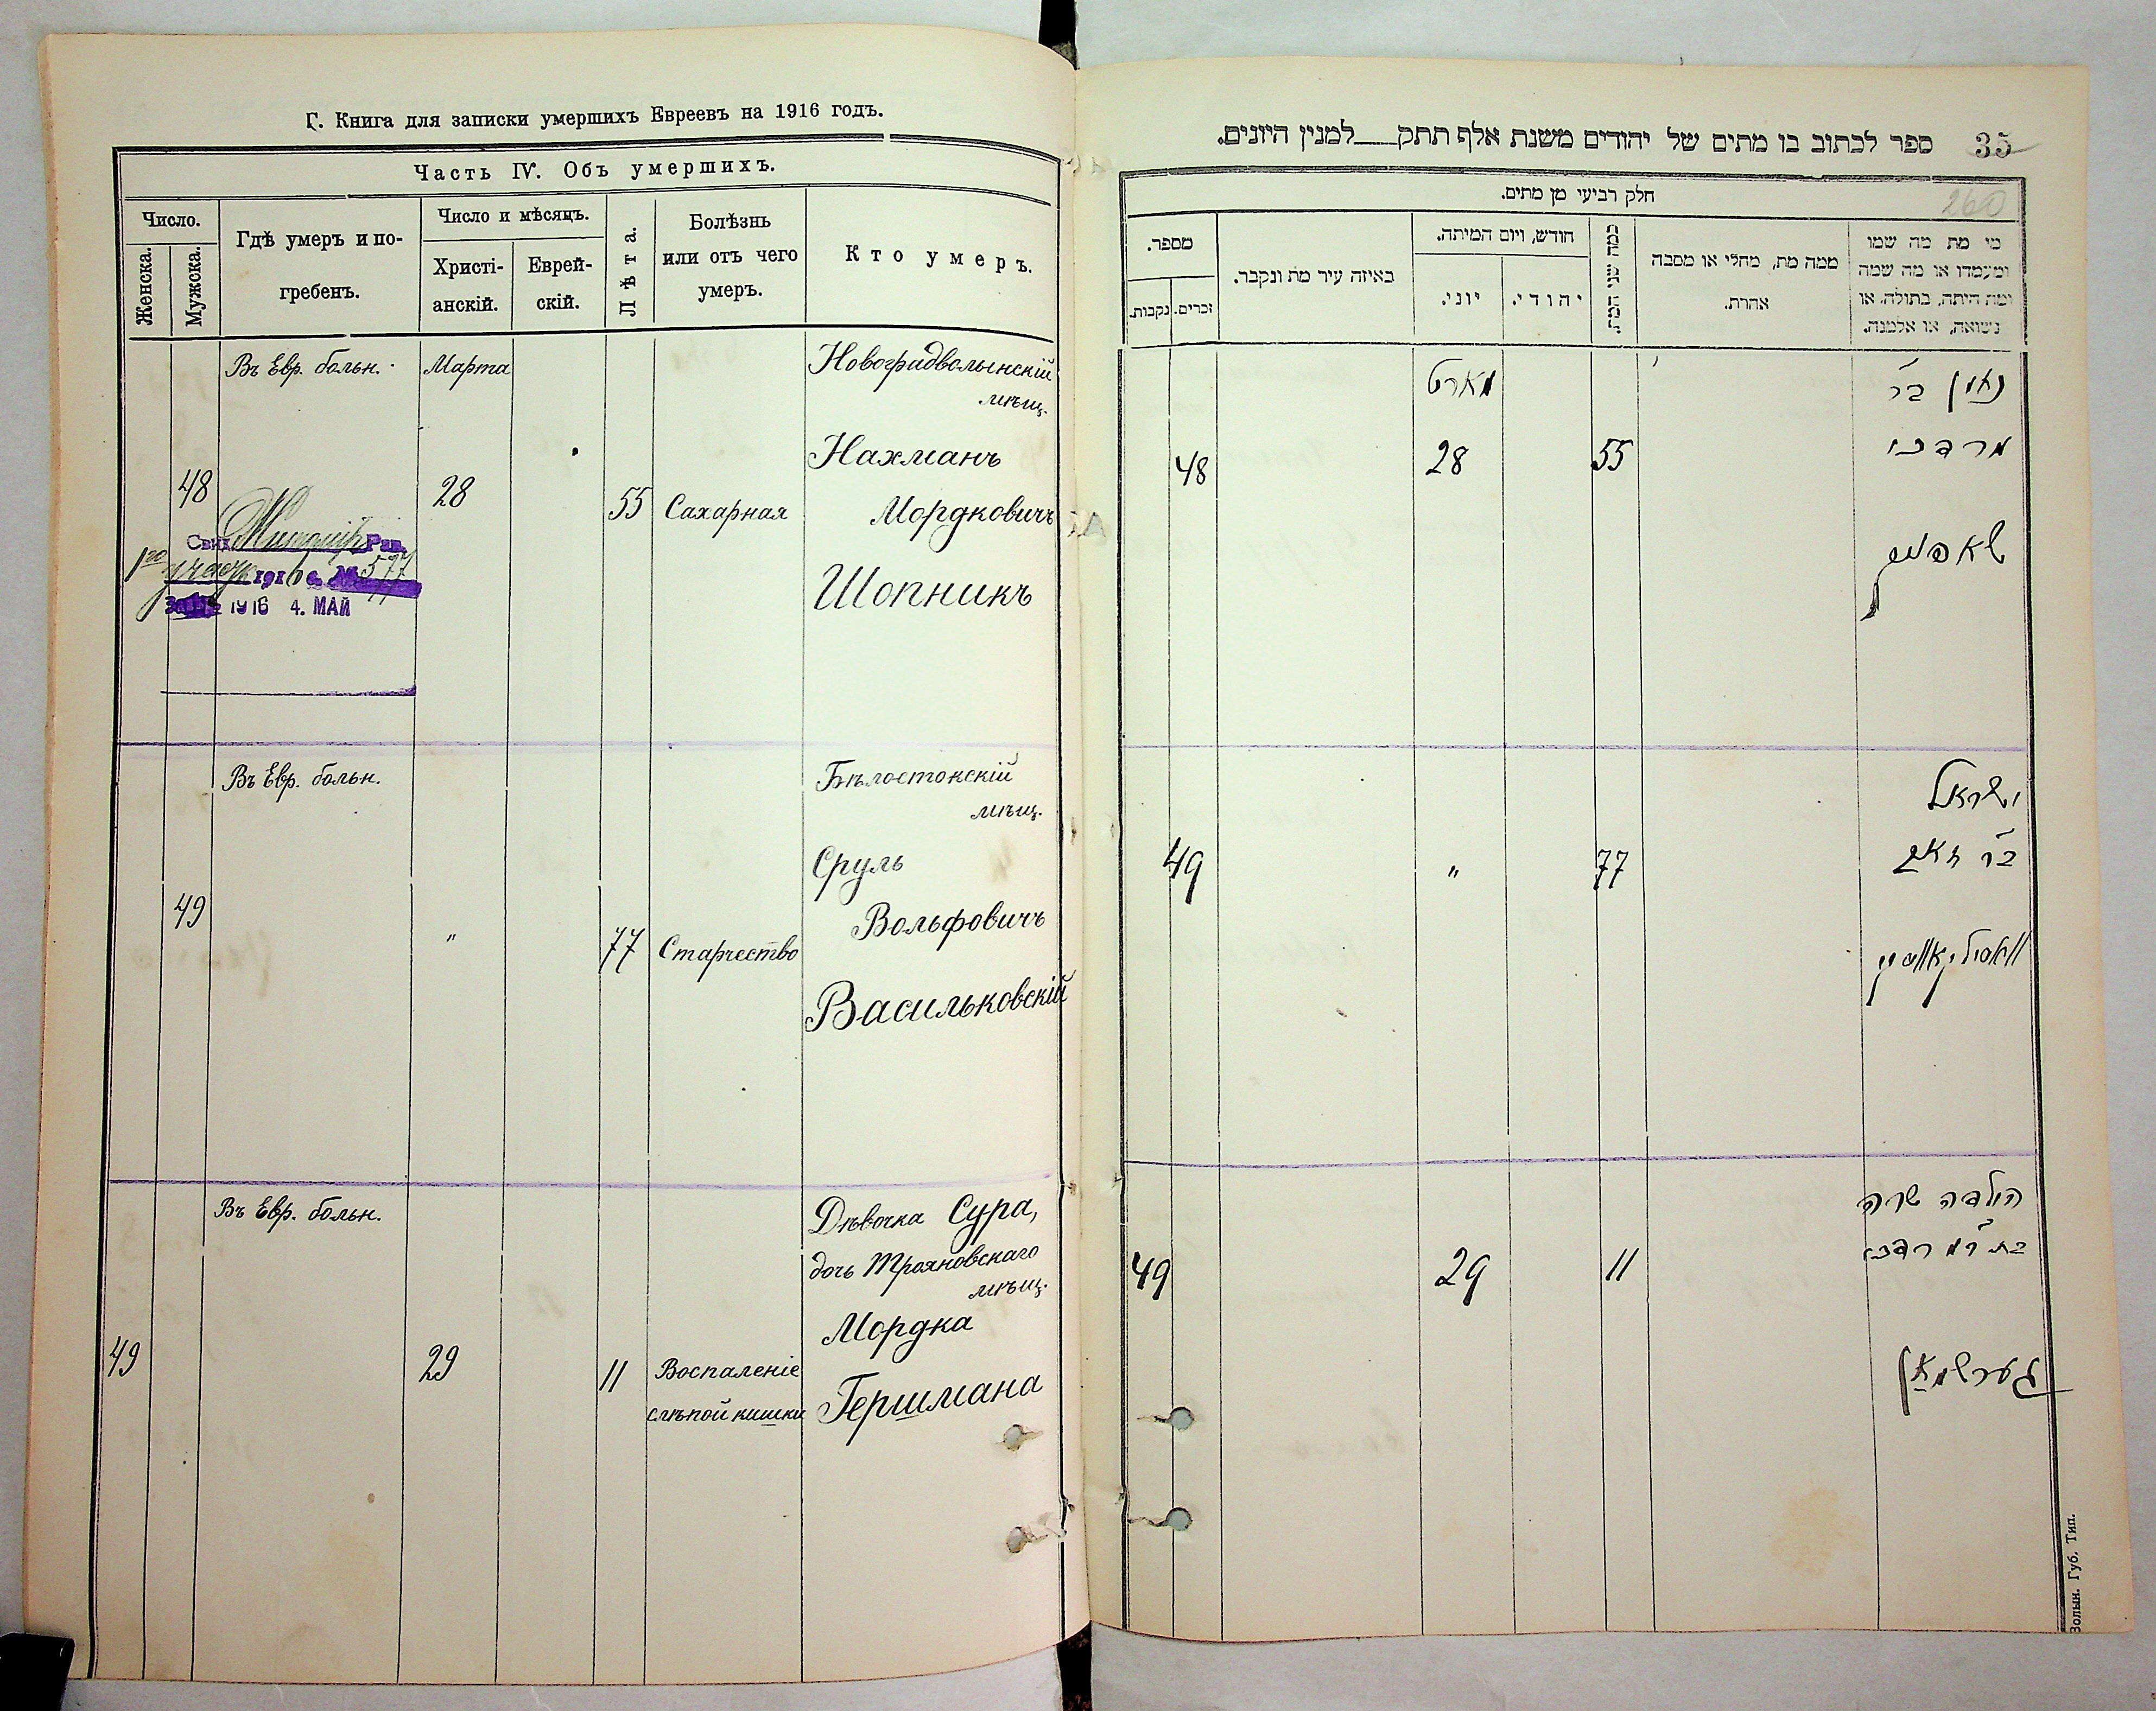 Г. Книга для записки умершихъ Евреевъ на 1916 годъ.
Часть IV. Объ умершихъ.
Число.
Женска.
Мужска.
Гдѣ умеръ и по-
гребенъ.
Число и мѣсяцъ.
Христі-
анскій.
Еврей-
скій.
Лѣта.
Болѣзнь
или отъ чего
умеръ.
Кто умеръ.
Въ Евр. больн.
Марта
Новоградволынскій
мѣщ.
Нахманъ
48
28
55
Сахарная
Мордковичъ
Шопникъ
Житомір Рав.
1го участк 1916 г. № 577
1916 4. МАЙ
Въ Евр. больн.
Бѣлостокскій
мѣщ.
Сруль
49
"
77
Старчество
Вольфовичъ
Васильковскій
Въ Евр. больн.
Дѣвочка Сура,
дочь Трояновскаго
мѣщ.
Мордка
49
29
11
Воспаленіе
слѣпой кишки
Гершмана
ספר לכתוב בו מתים של יהודים משנת אלף תתק___למנין היונים.
35
חלק רביעי מן מתים.
260
מי מת מה שמו
ומעמדו או מה שמה
ומה היתה, בתולה, או
נשואה, או אלמנה.
ממה מת, מחלי או מסבה
אחרת.
כמה שני המת.
חודש, ויום המיתה.
יהודי.
יוני.
באיזה עיר מת ונקבר.
מספר.
זכרים.
נקבות.
מארט
מרדכי
55
28
48
ישראל
בר זאב
77
"
49
וואסילקאווסקי
הילדה שרה
בת ר' מרדכי
11
29
49
גערשמאן
Волын. Губ. Тип.